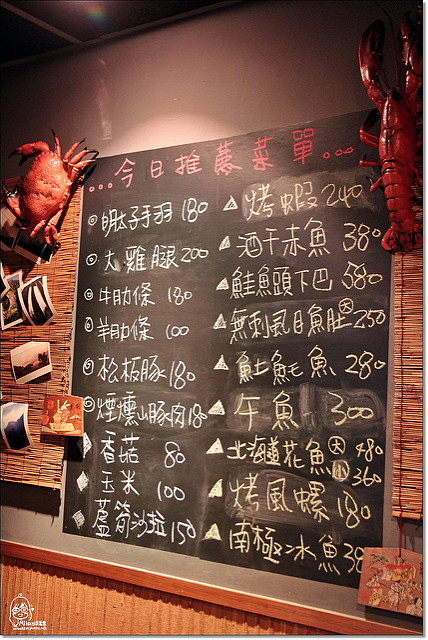 ...今日推薦菜單...
◎明太子手羽 180
◎大雞腿 200
◎牛肋條 180
◎羊肋條 100
◎松板豚 180
◎煙燻山豚肉 18
香菇 80
玉米 100
蘆筍沙拉 150
△烤蝦 240
酒干赤魚 380
鮭魚頭下巴 580
無刺虱目魚肚大 250
魠魚 280
午魚 300
北海道花魚 大 480
小 360
烤風螺 180
南極冰魚 38